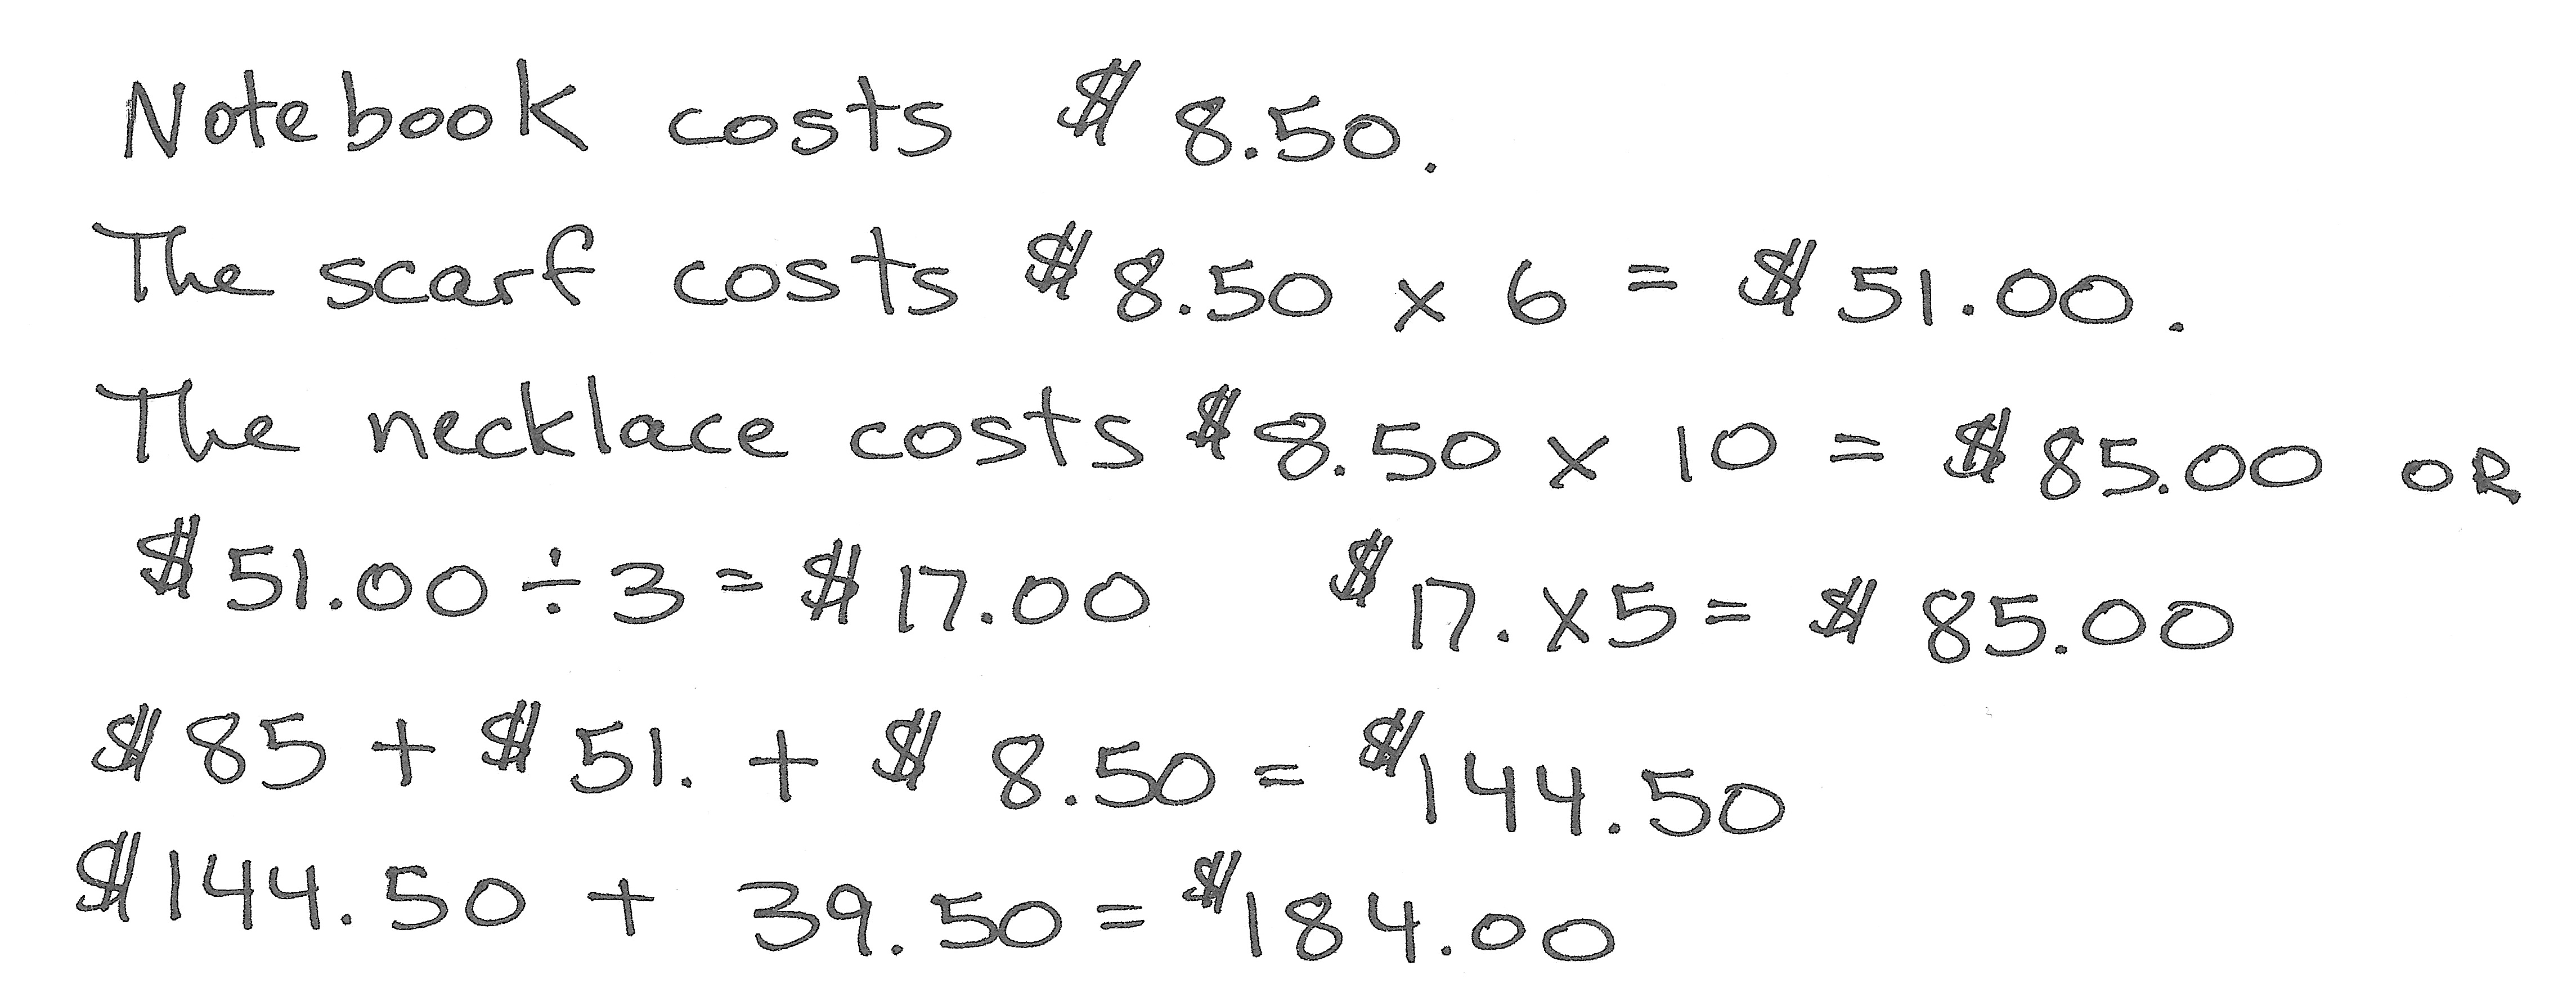 Notebook costs $ 8.50.
The scarf costs $ 8.50 x 6 = $ 51.00.
The necklace costs $ 8.50 x 10 = $ 85.00 OR
$ 51.00 ÷ 3 = $ 17.00 $ 17. x 5 = $ 85.00
$ 85 + $ 51. + $ 8.50 = $ 144.50
$ 144.50 + 39.50 = $ 184.00